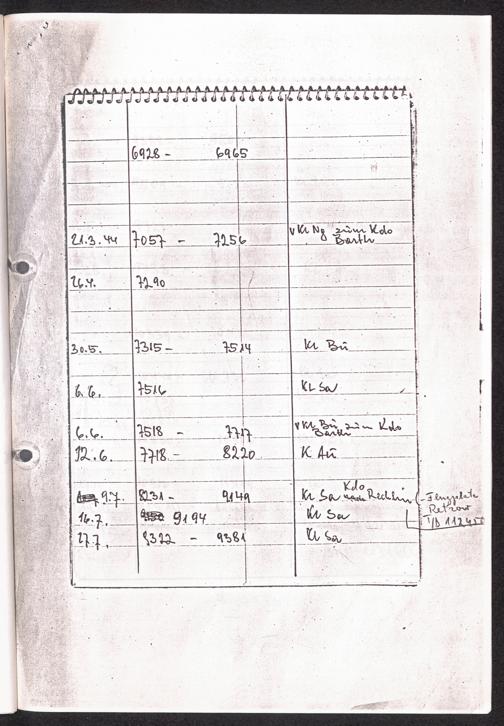 6928 - 6965
21.3.44 7057 - 7256 v KL Ng zum Kdo
Barth
26.4. 7290
30.5. 7315 - 7514 KL Bu
6.6. 7516 KL Sa
6.6. 7518 - 7717 v KL Bu zum Kdo
Barth
12.6. 7718 - 8220 K Au
Kdo
9.7. 8231 - 9149 KL Sa nach Rechlin
16.7. 9194 KL Sa
27.7. 9322 - 9381 KL Sa
Retzow